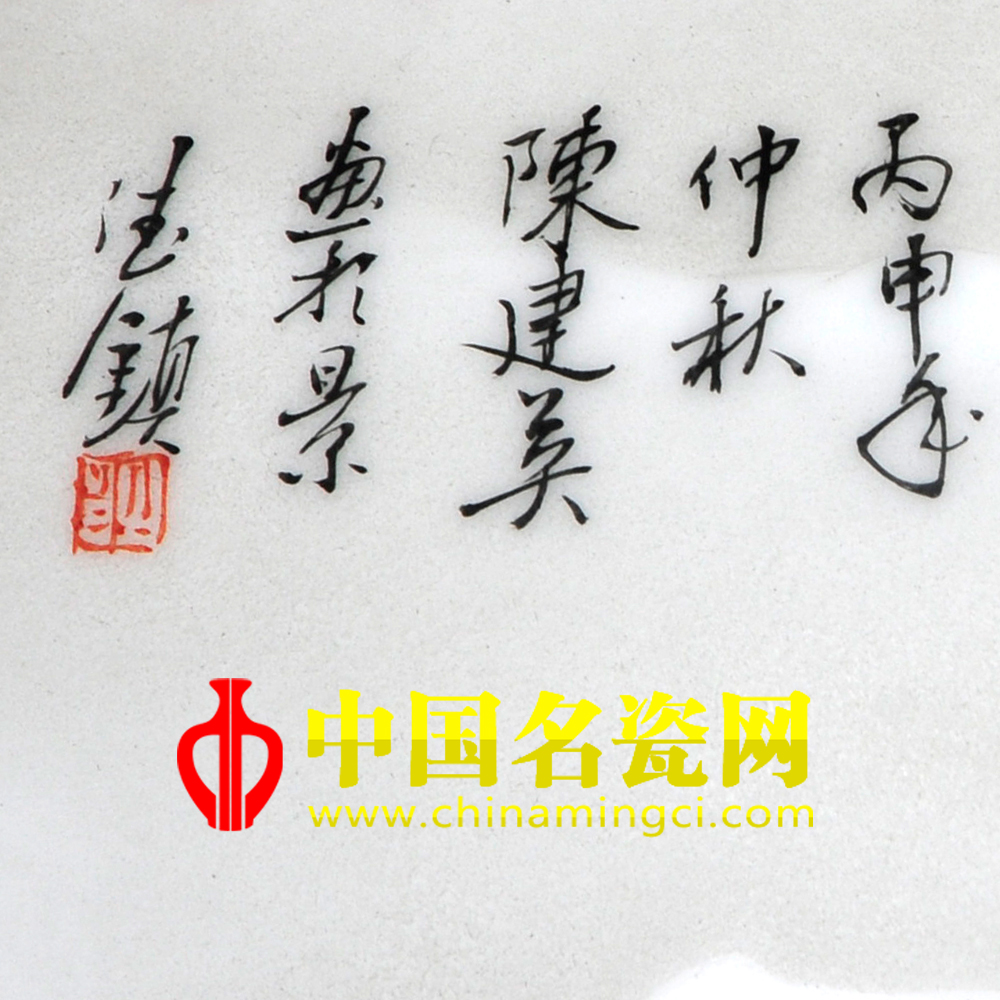 丙申年
仲秋
陳建英
畫於景
德鎮
中国名瓷网
www.chinamingci.com